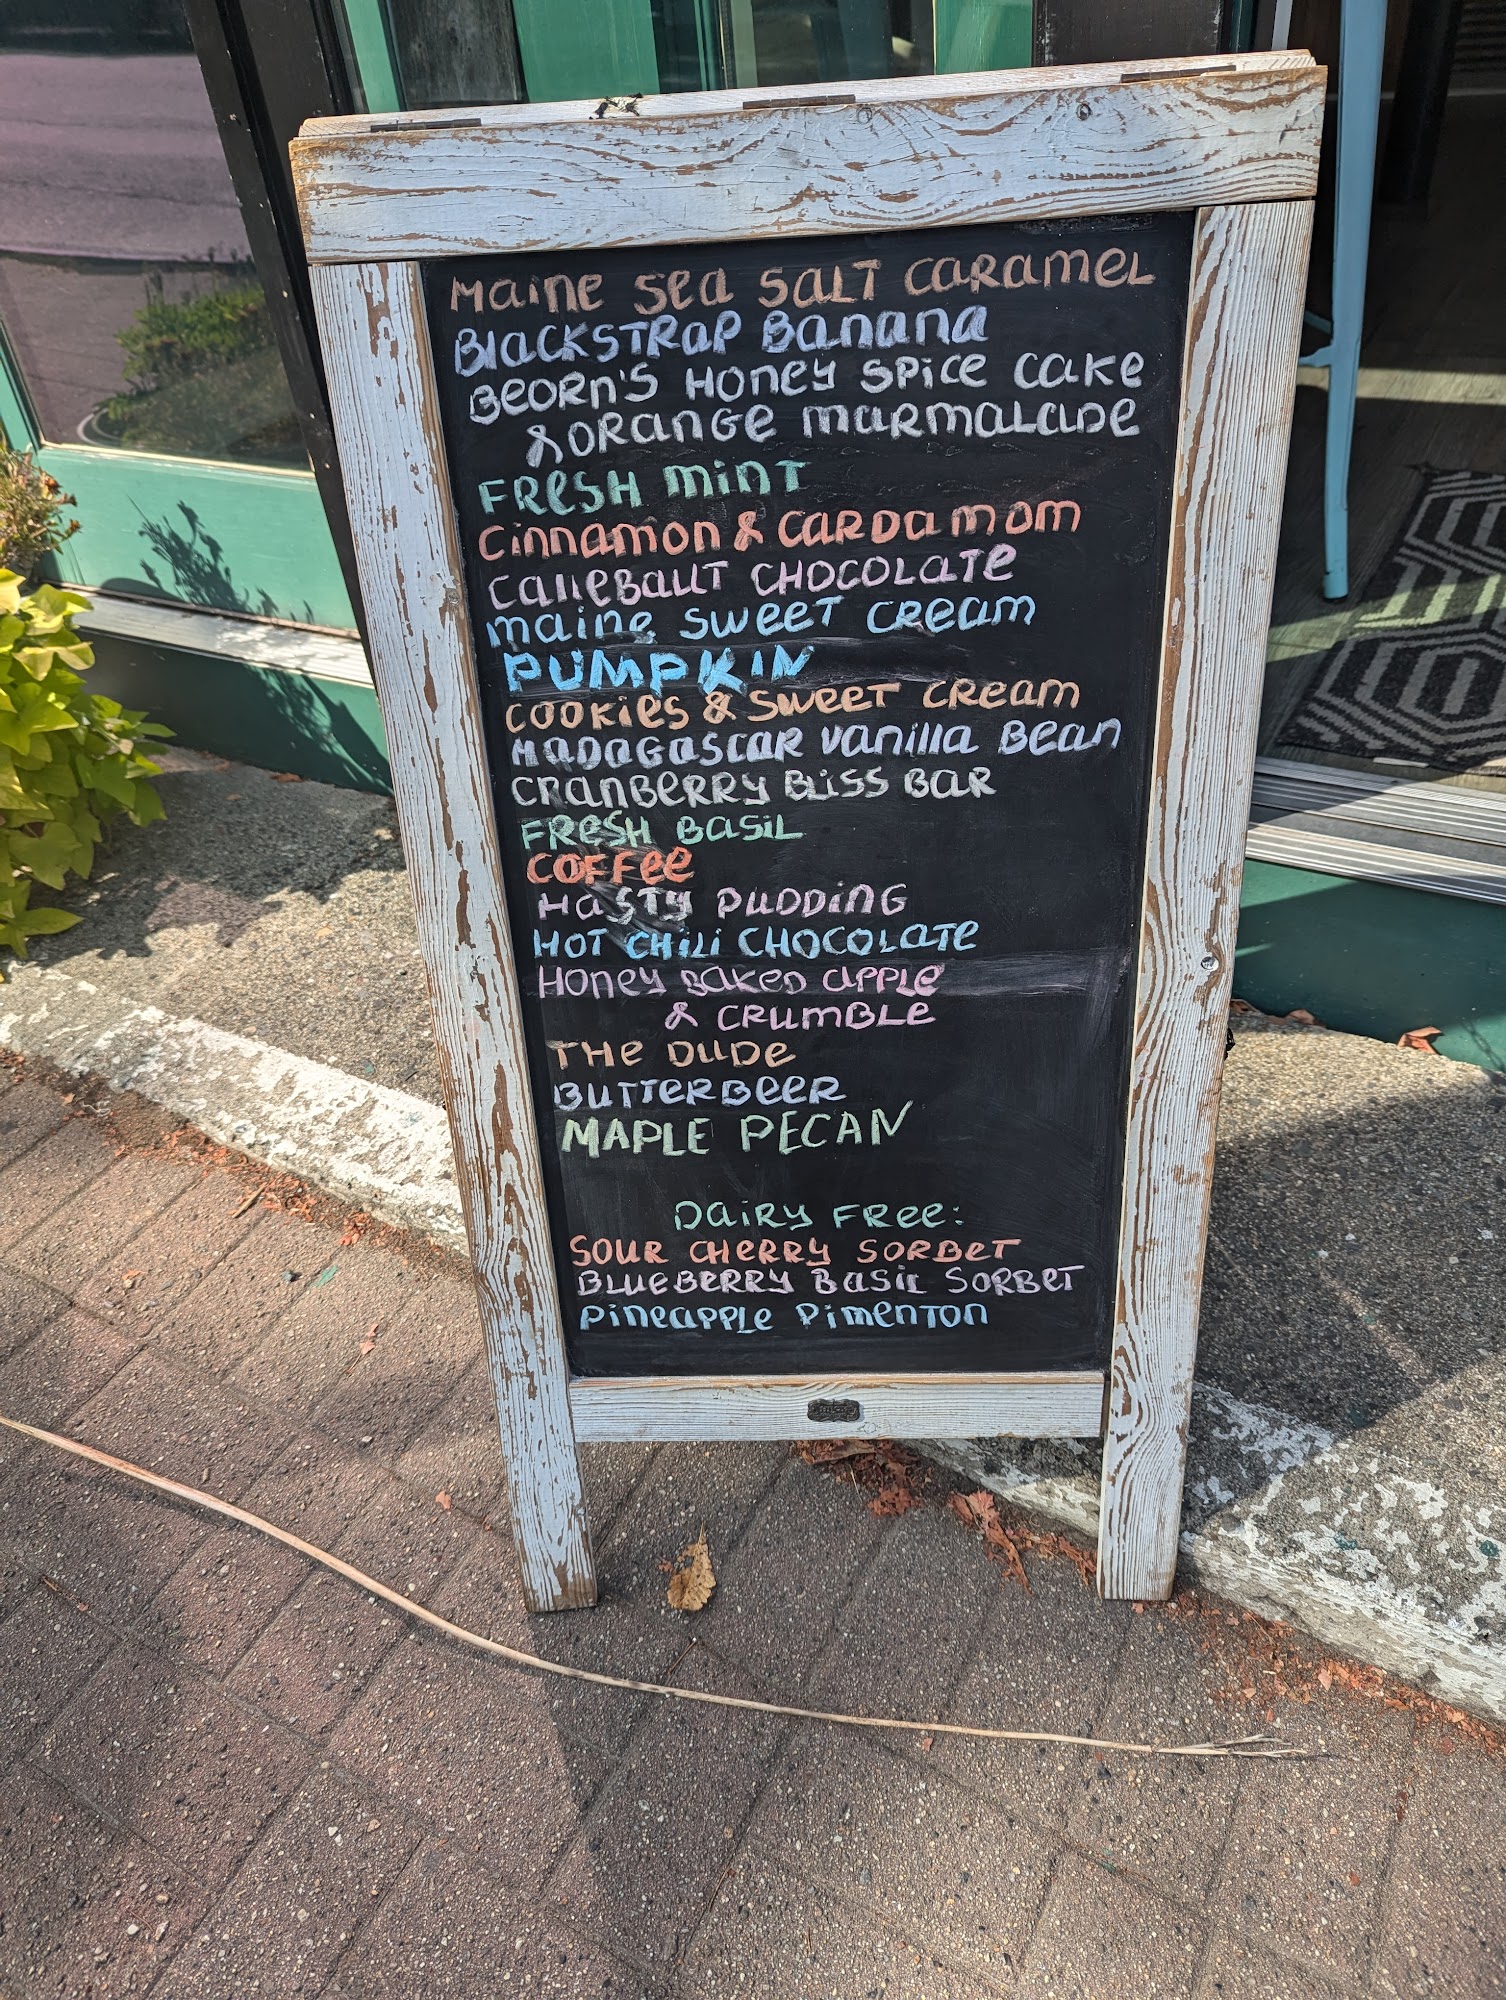 Maine Sea Salt Caramel
Blackstrap Banana
Beorn's Honey Spice Cake
& Orange Marmalade
Fresh Mint
Cinnamon & Cardamom
Callebaut Chocolate
Maine Sweet Cream
PUMPKIN
Cookies & Sweet Cream
Madagascar Vanilla Bean
Cranberry Bliss Bar
Fresh Basil
Coffee
Hasty Pudding
Hot Chili Chocolate
Honey Baked Apple
& Crumble
The Dude
Butterbeer
MAPLE PECAN
Dairy Free:
Sour Cherry Sorbet
Blueberry Basil Sorbet
Pineapple Pimenton